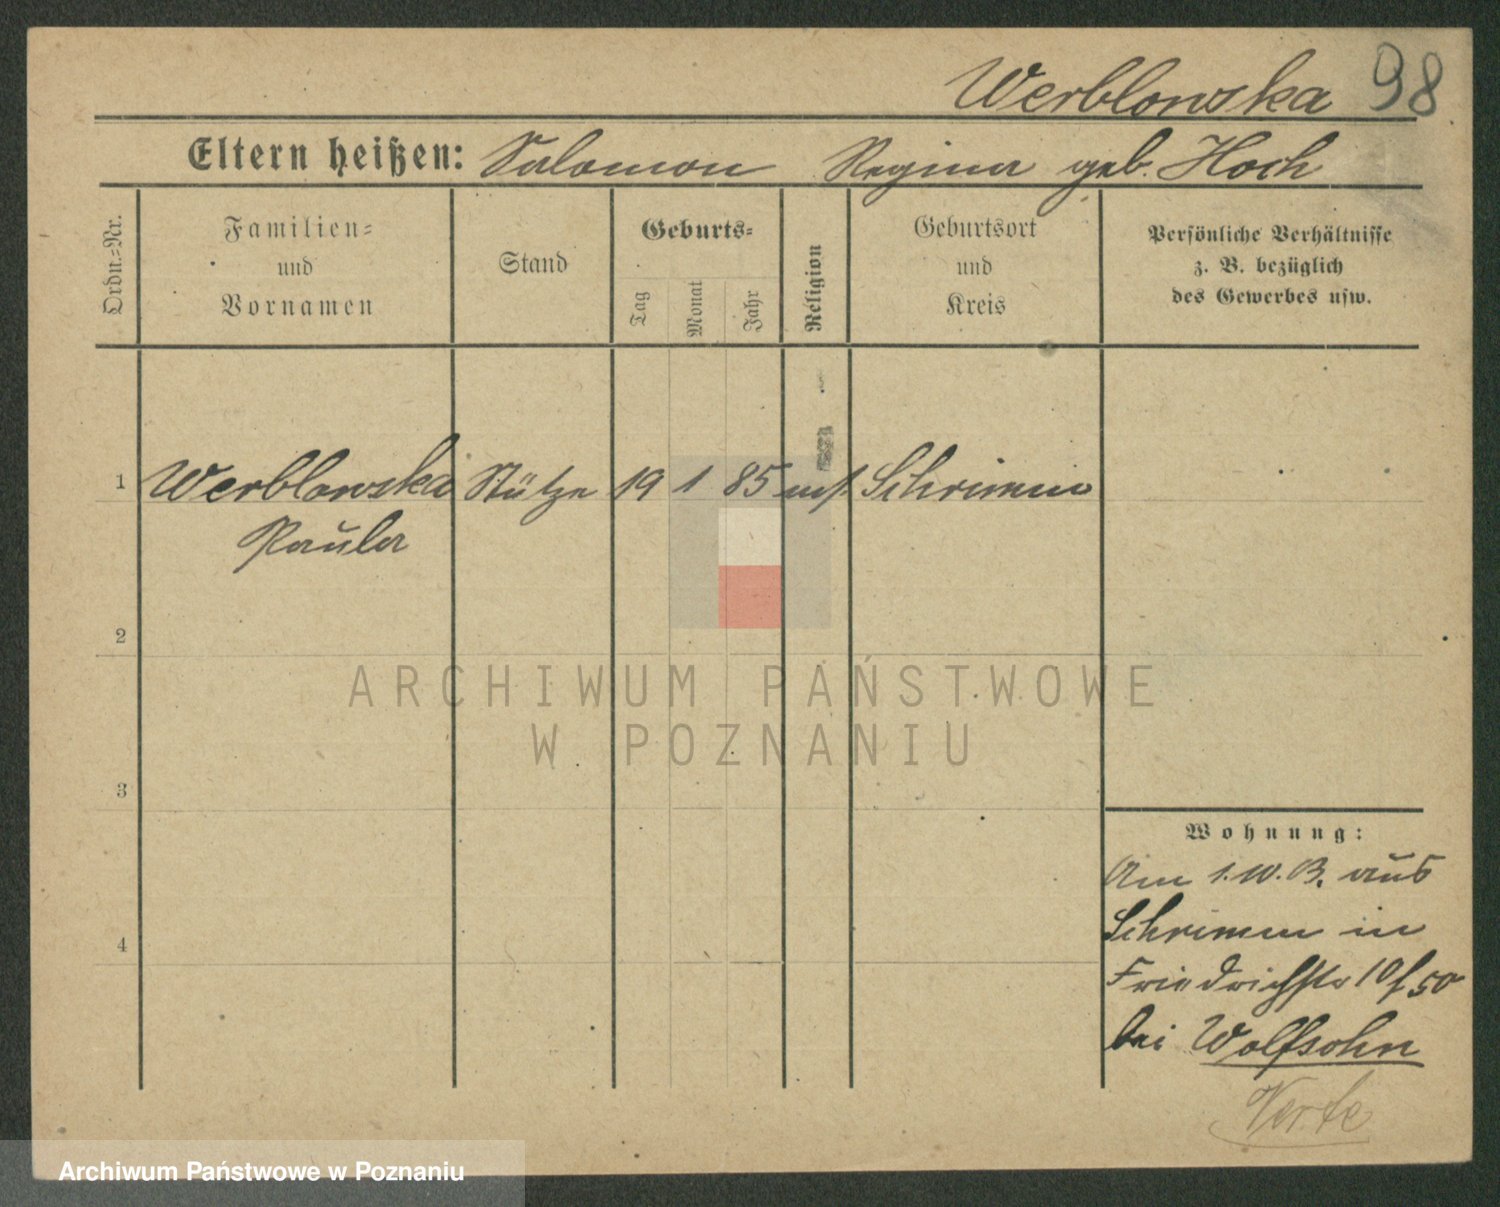 Werblowska 98
Eltern heißen: Salomon Regina geb. Hoch
Ordn.-Nr.
Familien- und Vornamen
Stand
Geburts-
Tag
Monat
Jahr
Religion
Geburtsort und Kreis
Persönliche Verhältnisse
z. B. bezüglich
des Gewerbes usw.
1 Werblowska Stütze 19 1 85 Schrimm
Paula
2
3
4
Wohnung:
Am 1.10. aus
Schrimm in
Friedrichstr 10
bei Wolfsohn
Verte
ARCHIWUM PAŃSTWOWE
W POZNANIU
Archiwum Państwowe w Poznaniu